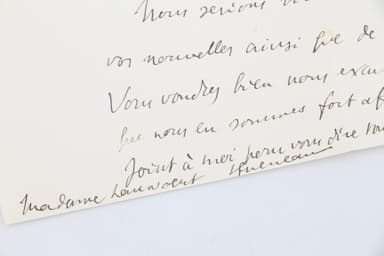 Nous serions
vos nouvelles ainsi que de
Vous voudrez bien nous excu
que nous en sommes fort af
Joint à moi pour vous dire tou
Madame